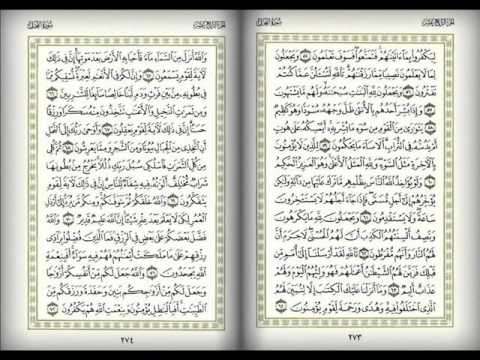 الجزء الرابع عشر
سورة النحل
لِيَكْفُرُوا۟ بِمَآ ءَاتَيْنَٰهُمْ فَتَمَتَّعُوا۟ فَسَوْفَ تَعْلَمُونَ ٥٥ وَيَجْعَلُونَ
لِمَا لَا يَعْلَمُونَ نَصِيبًا مِّمَّا رَزَقْنَٰهُمْ تَٱللَّهِ لَتُسْـَٔلُنَّ عَمَّا كُنتُمْ
تَفْتَرُونَ ٥٦ وَيَجْعَلُونَ لِلَّهِ ٱلْبَنَٰتِ سُبْحَٰنَهُۥ وَلَهُم مَّا يَشْتَهُونَ
٥٧ وَإِذَا بُشِّرَ أَحَدُهُم بِٱلْأُنثَىٰ ظَلَّ وَجْهُهُۥ مُسْوَدًّا وَهُوَ كَظِيمٌ
٥٨ يَتَوَٰرَىٰ مِنَ ٱلْقَوْمِ مِن سُوٓءِ مَا بُشِّرَ بِهِۦٓ أَيُمْسِكُهُۥ عَلَىٰ هُونٍ
أَمْ يَدُسُّهُۥ فِى ٱلتُّرَابِ أَلَا سَآءَ مَا يَحْكُمُونَ ٥٩ لِلَّذِينَ لَا يُؤْمِنُونَ
بِٱلْأٓخِرَةِ مَثَلُ ٱلسَّوْءِ وَلِلَّهِ ٱلْمَثَلُ ٱلْأَعْلَىٰ وَهُوَ ٱلْعَزِيزُ ٱلْحَكِيمُ
٦٠ وَلَوْ يُؤَاخِذُ ٱللَّهُ ٱلنَّاسَ بِظُلْمِهِم مَّا تَرَكَ عَلَيْهَا مِن دَآبَّةٍ وَلَٰكِن
يُؤَخِّرُهُمْ إِلَىٰٓ أَجَلٍ مُّسَمًّى فَإِذَا جَآءَ أَجَلُهُمْ لَا يَسْتَـْٔخِرُونَ
سَاعَةً وَلَا يَسْتَقْدِمُونَ ٦١ وَيَجْعَلُونَ لِلَّهِ مَا يَكْرَهُونَ
وَتَصِفُ أَلْسِنَتُهُمُ ٱلْكَذِبَ أَنَّ لَهُمُ ٱلْحُسْنَىٰ لَا جَرَمَ أَنَّ
لَهُمُ ٱلنَّارَ وَأَنَّهُم مُّفْرَطُونَ ٦٢ تَٱللَّهِ لَقَدْ أَرْسَلْنَآ إِلَىٰٓ أُمَمٍ مِّن
قَبْلِكَ فَزَيَّنَ لَهُمُ ٱلشَّيْطَٰنُ أَعْمَٰلَهُمْ فَهُوَ وَلِيُّهُمُ ٱلْيَوْمَ وَلَهُمْ
عَذَابٌ أَلِيمٌ ٦٣ وَمَآ أَنزَلْنَا عَلَيْكَ ٱلْكِتَٰبَ إِلَّا لِتُبَيِّنَ لَهُمُ
ٱلَّذِى ٱخْتَلَفُوا۟ فِيهِ وَهُدًى وَرَحْمَةً لِّقَوْمٍ يُؤْمِنُونَ ٦٤
٢٧٣
الجزء الرابع عشر
سورة النحل
وَٱللَّهُ أَنزَلَ مِنَ ٱلسَّمَآءِ مَآءً فَأَحْيَا بِهِ ٱلْأَرْضَ بَعْدَ مَوْتِهَآ إِنَّ فِى ذَٰلِكَ
لَأٓيَةً لِّقَوْمٍ يَسْمَعُونَ ٦٥ وَإِنَّ لَكُمْ فِى ٱلْأَنْعَٰمِ لَعِبْرَةً نُّسْقِيكُم مِّمَّا
فِى بُطُونِهِۦ مِنۢ بَيْنِ فَرْثٍ وَدَمٍ لَّبَنًا خَالِصًا سَآئِغًا لِّلشَّٰرِبِينَ ٦٦
وَمِن ثَمَرَٰتِ ٱلنَّخِيلِ وَٱلْأَعْنَٰبِ تَتَّخِذُونَ مِنْهُ سَكَرًا وَرِزْقًا
حَسَنًا إِنَّ فِى ذَٰلِكَ لَأٓيَةً لِّقَوْمٍ يَعْقِلُونَ ٦٧ وَأَوْحَىٰ رَبُّكَ إِلَى ٱلنَّحْلِ
أَنِ ٱتَّخِذِى مِنَ ٱلْجِبَالِ بُيُوتًا وَمِنَ ٱلشَّجَرِ وَمِمَّا يَعْرِشُونَ ٦٨ ثُمَّ كُلِى
مِن كُلِّ ٱلثَّمَرَٰتِ فَٱسْلُكِى سُبُلَ رَبِّكِ ذُلُلًا يَخْرُجُ مِنۢ بُطُونِهَا
شَرَابٌ مُّخْتَلِفٌ أَلْوَٰنُهُۥ فِيهِ شِفَآءٌ لِّلنَّاسِ إِنَّ فِى ذَٰلِكَ لَأٓيَةً لِّقَوْمٍ
يَتَفَكَّرُونَ ٦٩ وَٱللَّهُ خَلَقَكُمْ ثُمَّ يَتَوَفَّىٰكُمْ وَمِنكُم مَّن يُرَدُّ إِلَىٰٓ أَرْذَلِ
ٱلْعُمُرِ لِكَىْ لَا يَعْلَمَ بَعْدَ عِلْمٍ شَيْـًٔا إِنَّ ٱللَّهَ عَلِيمٌ قَدِيرٌ ٧٠ وَٱللَّهُ
فَضَّلَ بَعْضَكُمْ عَلَىٰ بَعْضٍ فِى ٱلرِّزْقِ فَمَا ٱلَّذِينَ فُضِّلُوا۟ بِرَآدِّى
رِزْقِهِمْ عَلَىٰ مَا مَلَكَتْ أَيْمَٰنُهُمْ فَهُمْ فِيهِ سَوَآءٌ أَفَبِنِعْمَةِ
ٱللَّهِ يَجْحَدُونَ ٧١ وَٱللَّهُ جَعَلَ لَكُم مِّنْ أَنفُسِكُمْ أَزْوَٰجًا
وَجَعَلَ لَكُم مِّنْ أَزْوَٰجِكُم بَنِينَ وَحَفَدَةً وَرَزَقَكُم مِّنَ
ٱلطَّيِّبَٰتِ أَفَبِٱلْبَٰطِلِ يُؤْمِنُونَ وَبِنِعْمَتِ ٱللَّهِ هُمْ يَكْفُرُونَ ٧٢
٢٧٤